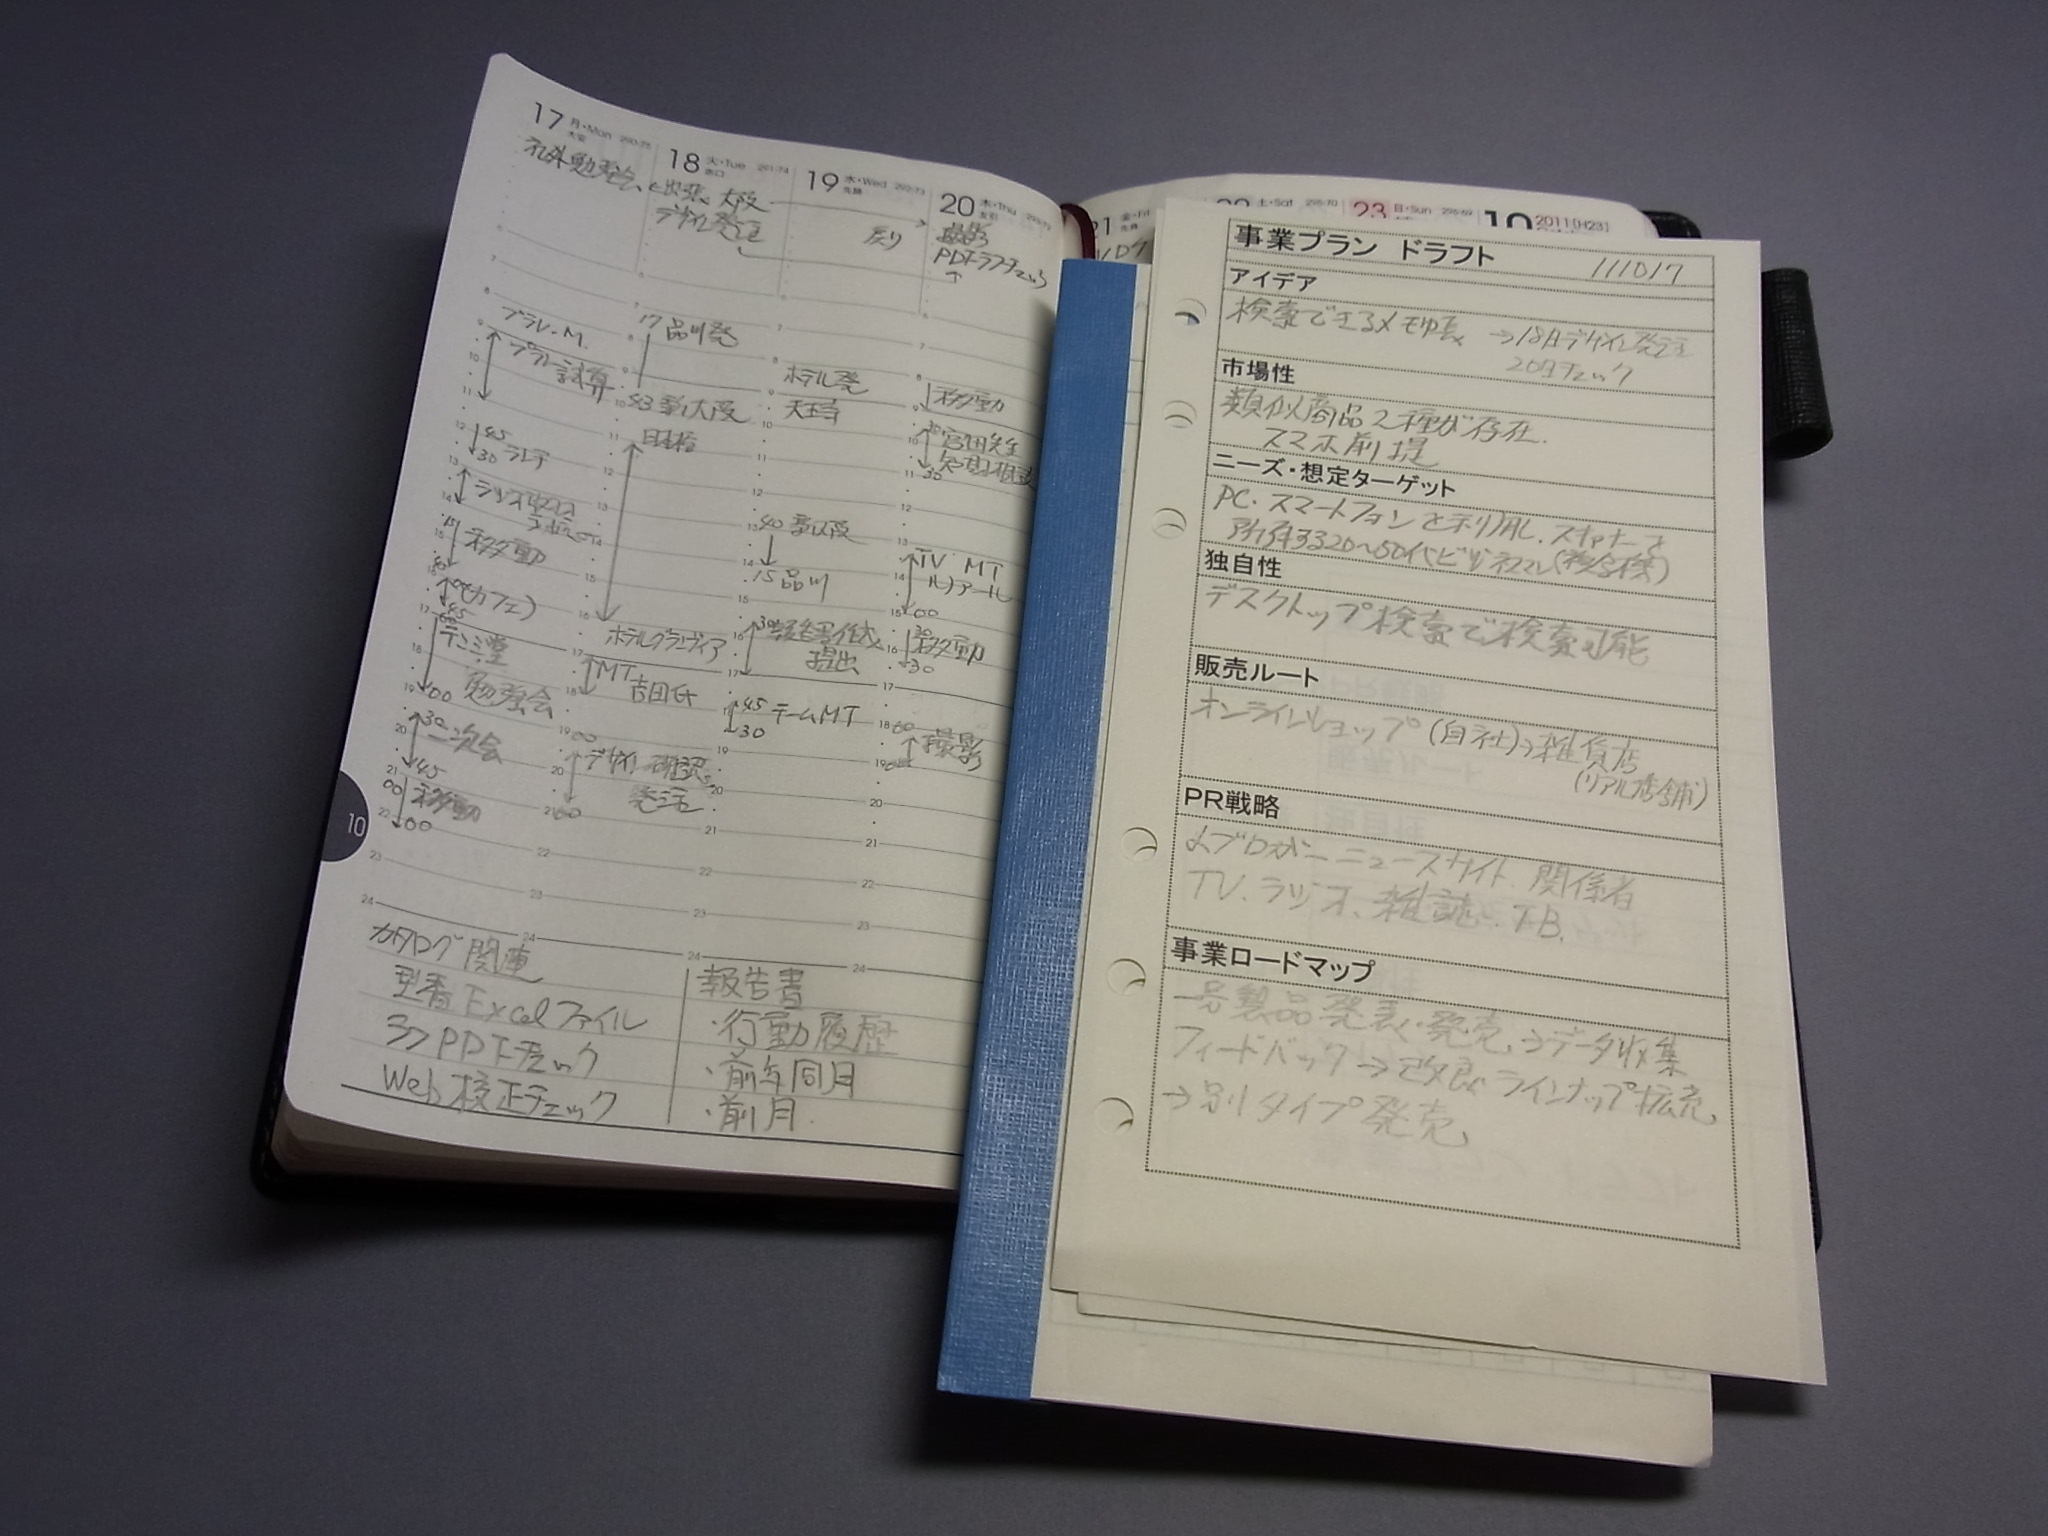 17 月・Mon 290-75
大安
社外勉強会
18 火・Tue 291-74
赤口
出張 大阪
デザイン発注
19 水・Wed 292-73
先勝
戻り
20 木・Thu
友引
撮影
PDFラフチェック
ブラレ.M.
プラン試算
45
30 ラレテ
移動
(カフェ)
45
勉強会
00
30 二次会
45
00 移動
00
17 品川発
43 新大阪
日本橋
ホテルグランヴィア
MT 吉田氏
00 デザイン確認
発注
00
ホテル発
天王寺
40 新大阪
15 品川
30 報告書作成
提出
45 チームMT
30
移動
宮田先生
30
TV MT
リアール
00
30 移動
30
00 撮影
10
カタログ関連
型番Excelファイル
ラフPDFチェック
Web校正チェック
報告書
・行動履歴
・前年同月
・前月
21 金・Fri
先負
22 土・Sat 295-70
23 日・Sun 296-69
10 2011[H23]
事業プラン ドラフト 111017
アイデア
検索できるメモ帳 →18日デザイン発注
20日チェック
市場性
類似商品2種が存在.
スマホ前提
ニーズ・想定ターゲット
PC・スマートフォンを利用し、スキャナーを
所有する20〜50代ビジネスマン(複合機)
独自性
デスクトップ検索で検索可能
販売ルート
オンラインショップ(自社)→雑貨店
(リアル店舗)
PR戦略
ブロガー ニュースサイト、関係者
TV、ラジオ、雑誌、FB.
事業ロードマップ
一号製品発表・発売、→データ収集
フィードバック→改良 ラインナップ拡充、
→別タイプ発売、